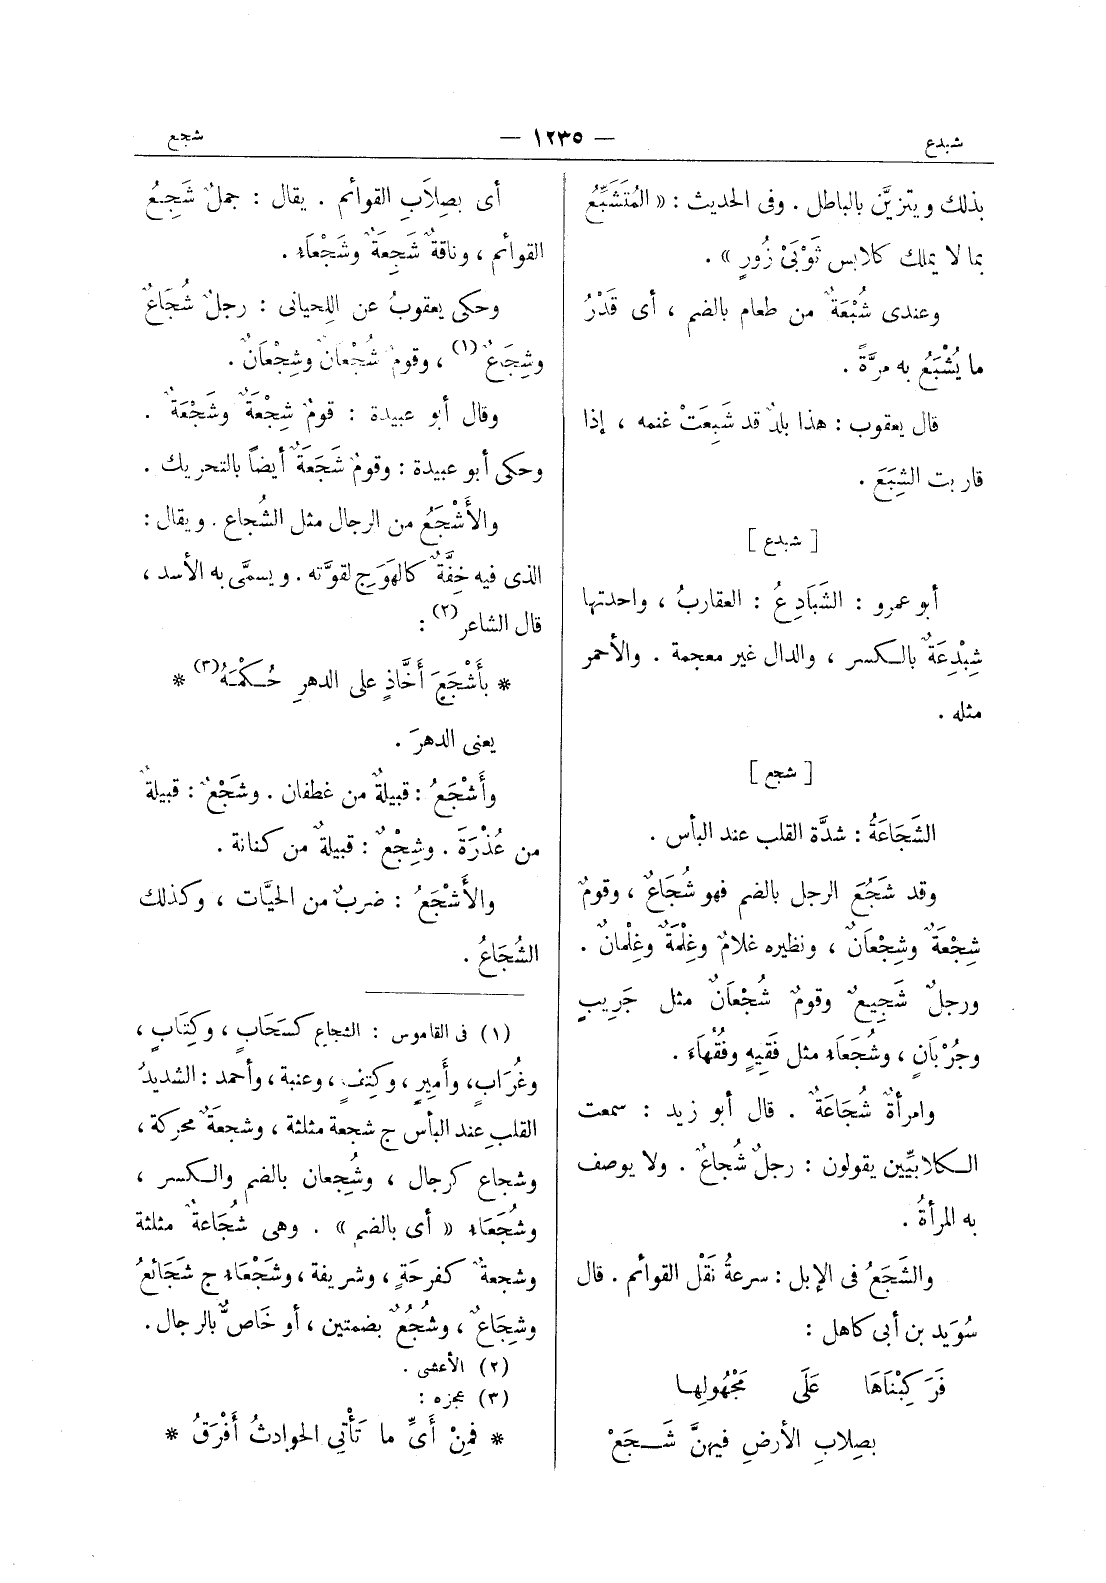 شبدع
— ١٢٣٥ —
شجع
بذلك ويتزيَّن بالباطل . وفى الحديث : « المُتَشَبِّعُ
بما لا يملك كلابس ثَوْبَىْ زُورٍ » .
وعندى شُبْعَةٌ من طعام بالضم ، أى قَدْرُ
ما يُشْبَعُ به مرَّةً .
قال يعقوب : هذا بلدٌ قد شَبِعَتْ غنمه ، إذا
قاربت الشِبَعَ .
[ شبدع ]
أبو عمرو : الشَبَادِعُ : العقاربُ ، واحدتها
شِبْدِعَةٌ بالكسر ، والدال غير معجمة . والأحمر
مثله .
[ شجع ]
الشَجَاعَةُ : شدَّة القلب عند البأس .
وقد شَجُعَ الرجل بالضم فهو شُجَاعٌ ، وقومٌ
شِجْعَةٌ وشِجْعَانٌ ، ونظيره غلامٌ وغِلْمَةٌ وغِلْمانٌ .
ورجلٌ شَجِيعٌ وقومٌ شُجْعَانٌ مثل جَرِيبٍ
وجُرْبَانٍ ، وشُجَعَاء مثل فَقِيهٍ وفُقَهَاءَ .
وامرأةٌ شُجَاعَةٌ . قال أبو زيد : سمعت
الكلابيِّين يقولون : رجلٌ شُجاعٌ . ولا يوصف
به المرأةُ .
والشَجَعُ فى الإبل : سرعةُ نَقْل القوائم . قال
سُوَيد بن أبى كاهل :
فَرَكِبْنَاهَا عَلَى مَجْهُولِها
بصِلابِ الأرضِ فيهنَّ شَجَعْ
أى بصِلَابِ القوائم . يقال : جملٌ شَجِعُ
القوائم ، وناقةٌ شَجِعَةٌ وشَجْعَاء .
وحكى يعقوبُ عن اللِحيانى : رجلٌ شُجَاعٌ
وشِجَاعٌ (١) ، وقومٌ شُجْعَانٌ وشِجْعَانٌ .
وقال أبو عبيدة : قومٌ شِجْعَةٌ وشَجْعَةٌ .
وحكى أبو عبيدة : وقومٌ شَجَعَةٌ أيضاً بالتحريك .
والأَشْجَعُ من الرجال مثل الشُجاع . ويقال :
الذى فيه خِفَّةٌ كالهَوَجِ لقوَّته . ويسمَّى به الأسد ،
قال الشاعر (٢) :
* بأَشْجَعَ أَخَّاذٍ على الدهرِ حُكْمَهُ (٣) *
يعنى الدهرَ .
وأَشْجَعُ : قبيلةٌ من غطفان . وشَجْعٌ : قبيلةٌ
من عُذْرَةَ . وشِجْعٌ : قبيلةٌ من كنانة .
والأَشْجَعُ : ضربٌ من الحيَّات ، وكذلك
الشُجَاعُ .
(١) فى القاموس : الشجاع كسَحَابٍ ، وكِتَابٍ ،
وغُرَابٍ ، وأَمِيرٍ ، وكتِفٍ ، وعنبة ، وأحمد : الشديدُ
القلبِ عند البأس ج شجعة مثلثة ، وشجعةٌ محركة ،
وشجاع كرجال ، وشُجعان بالضم والكسر ،
وشُجَعَاء « أى بالضم » . وهى شُجَاعةٌ مثلثة
وشجعةٌ كفرحَةٍ ، وشريفة ، وشَجْعَاء ج شَجَائعُ
وشِجَاعٌ ، وشُجُعٌ بضمتين ، أو خَاصٌّ بالرجال .
(٢) الأعشى .
(٣) عجزه :
* فمِنْ أَىِّ ما تَأْتِى الحوادثُ أَفْرَقُ *